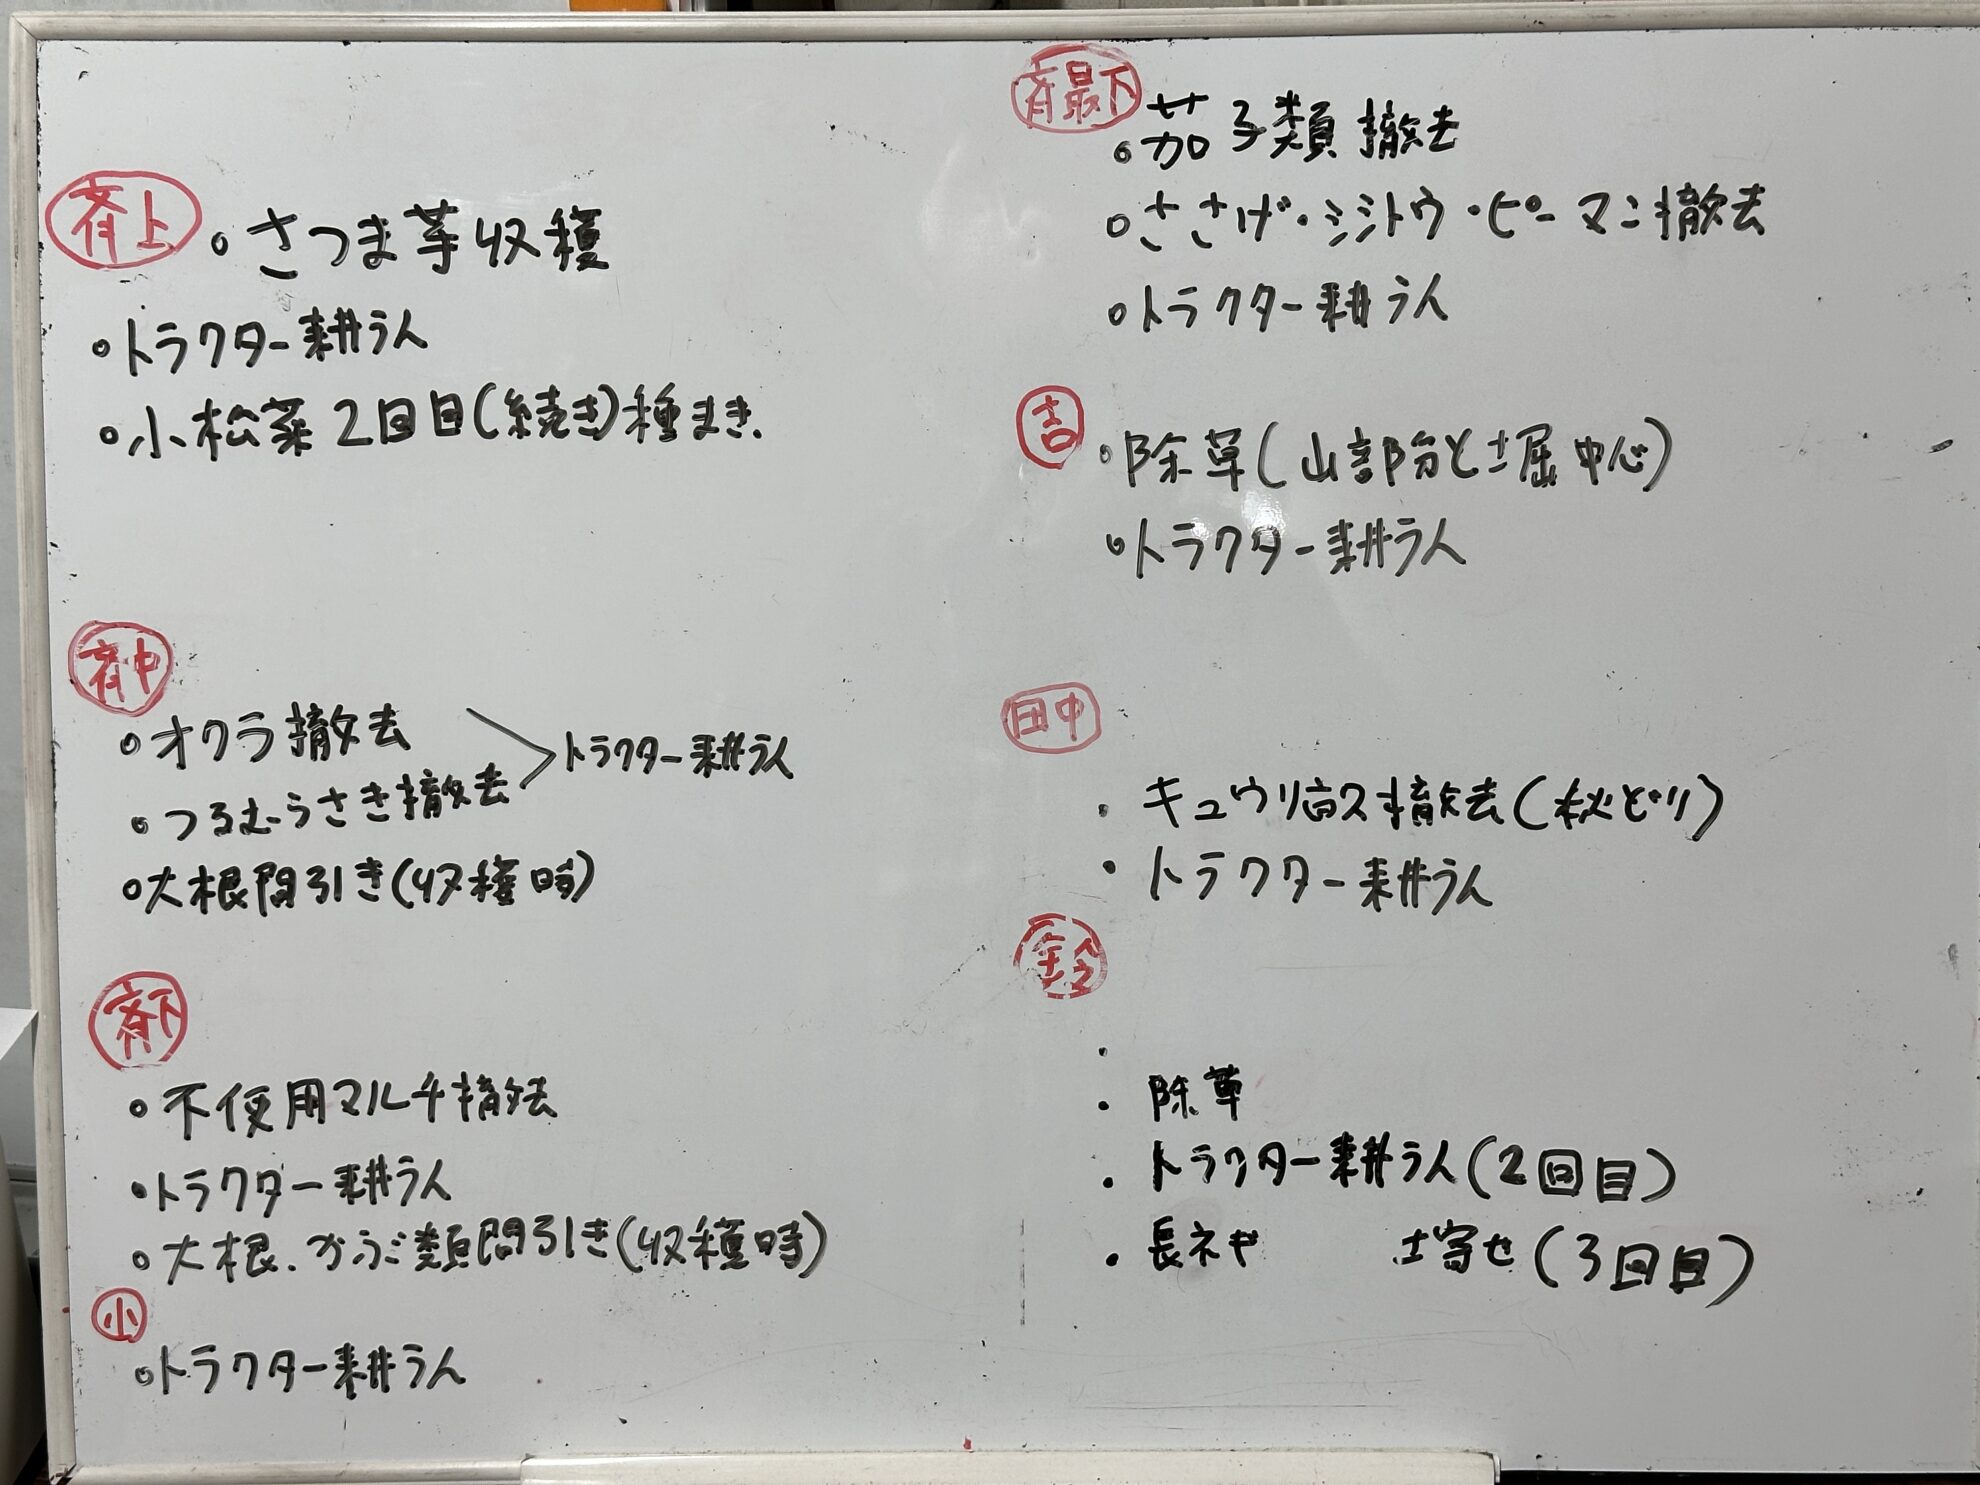 斉上
さつま芋収穫
トラクター耕うん
小松菜2回目(続き)種まき
斉中
オクラ撤去
つるむらさき撤去
トラクター耕うん
大根間引き(収穫時)
斉下
不使用マルチ撤去
トラクター耕うん
大根、かぶ類間引き(収穫時)
小
トラクター耕うん
斉最下
茄子類撤去
ささげ・シシトウ・ピーマン撤去
トラクター耕うん
吉
除草(山部分と堀中心)
トラクター耕うん
田中
キュウリ撤去(秋どり)
トラクター耕うん
鈴
除草
トラクター耕うん(2回目)
長ネギ 土寄せ(3回目)